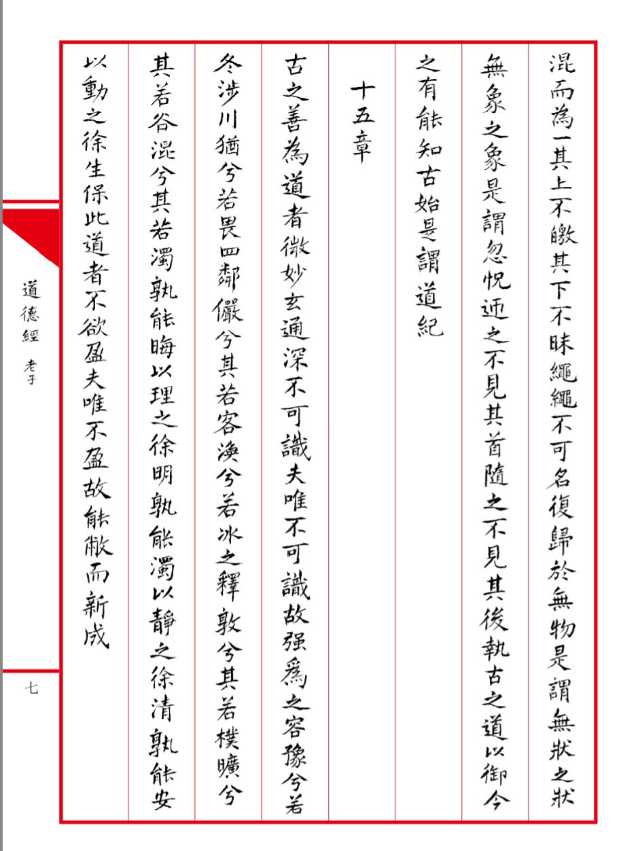 混而為一其上不皦其下不昧繩繩不可名復歸於無物是謂無狀之狀
無象之象是謂忽怳迎之不見其首隨之不見其後執古之道以御今
之有能知古始是謂道紀
十五章
古之善為道者微妙玄通深不可識夫唯不可識故强爲之容豫兮若
冬涉川猶兮若畏四鄰儼兮其若客渙兮若冰之釋敦兮其若樸曠兮
其若谷混兮其若濁孰能晦以理之徐明孰能濁以靜之徐清孰能安
以動之徐生保此道者不欲盈夫唯不盈故能敝而新成
道德經 老子
七